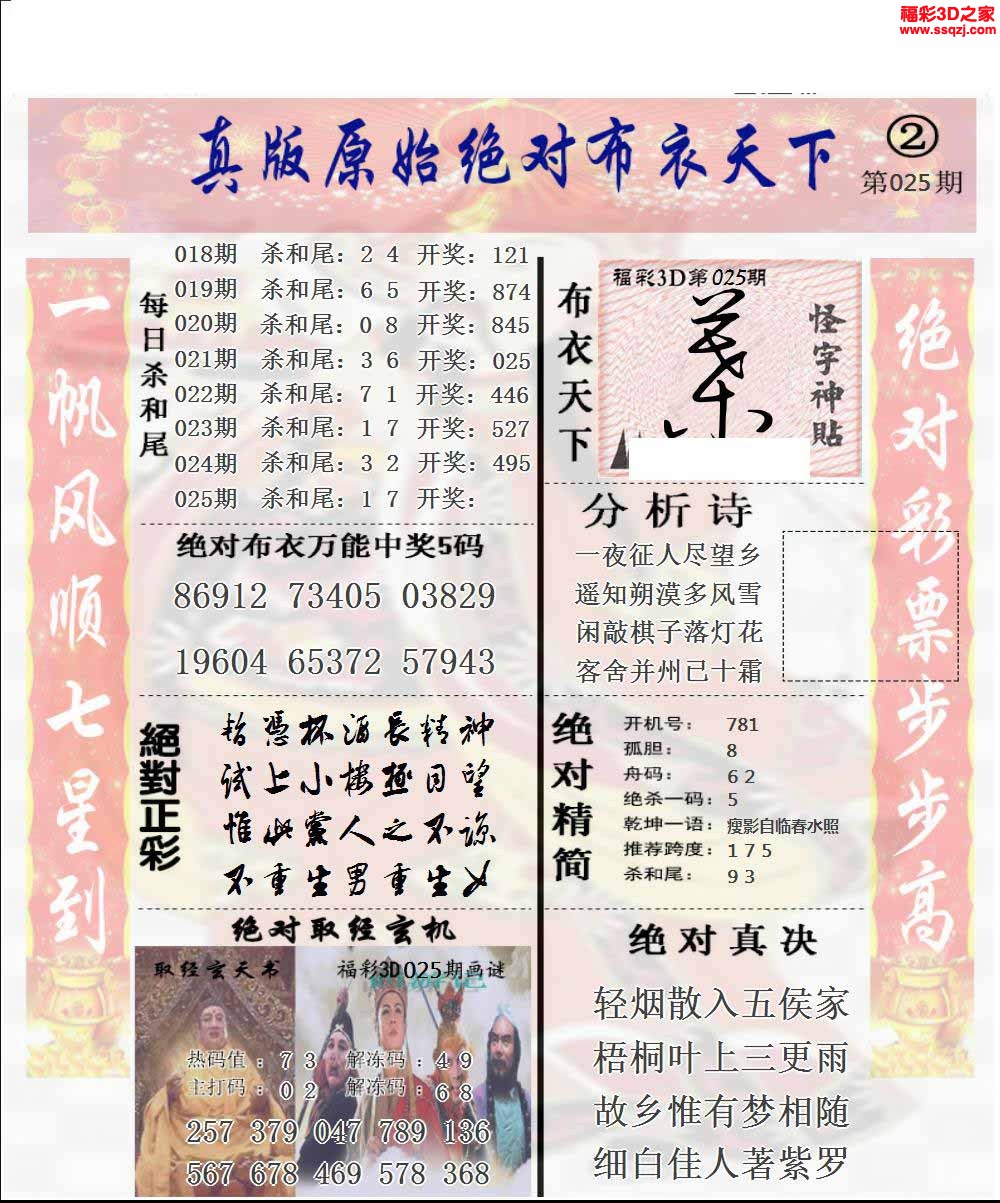 福彩3D之家
www.ssqzj.com
真版原始绝对布衣天下
②
第025期
一帆风顺七星到
每日杀和尾
018期 杀和尾：2 4 开奖：121
019期 杀和尾：6 5 开奖：874
020期 杀和尾：0 8 开奖：845
021期 杀和尾：3 6 开奖：025
022期 杀和尾：7 1 开奖：446
023期 杀和尾：1 7 开奖：527
024期 杀和尾：3 2 开奖：495
025期 杀和尾：1 7 开奖：
绝对布衣万能中奖5码
86912 73405 03829
19604 65372 57943
絕對正彩
暂憑杯酒長精神
试上小樓極目望
惟此黨人之不諒
不重生男重生女
绝对取经玄机
取经玄天书
福彩3D025期画谜
热码值：7 3 解冻码：4 9
主打码：0 2 解冻码：6 8
257 379 047 789 136
567 678 469 578 368
布衣天下
福彩3D第025期
怪字神貼
分析诗
一夜征人尽望乡
遥知朔漠多风雪
闲敲棋子落灯花
客舍并州已十霜
绝对精简
开机号：781
孤胆：8
舟码：6 2
绝杀一码：5
乾坤一语：瘦影自临春水照
推荐跨度：1 7 5
杀和尾：9 3
绝对真决
轻烟散入五侯家
梧桐叶上三更雨
故乡惟有梦相随
细白佳人著紫罗
绝对彩票步步高